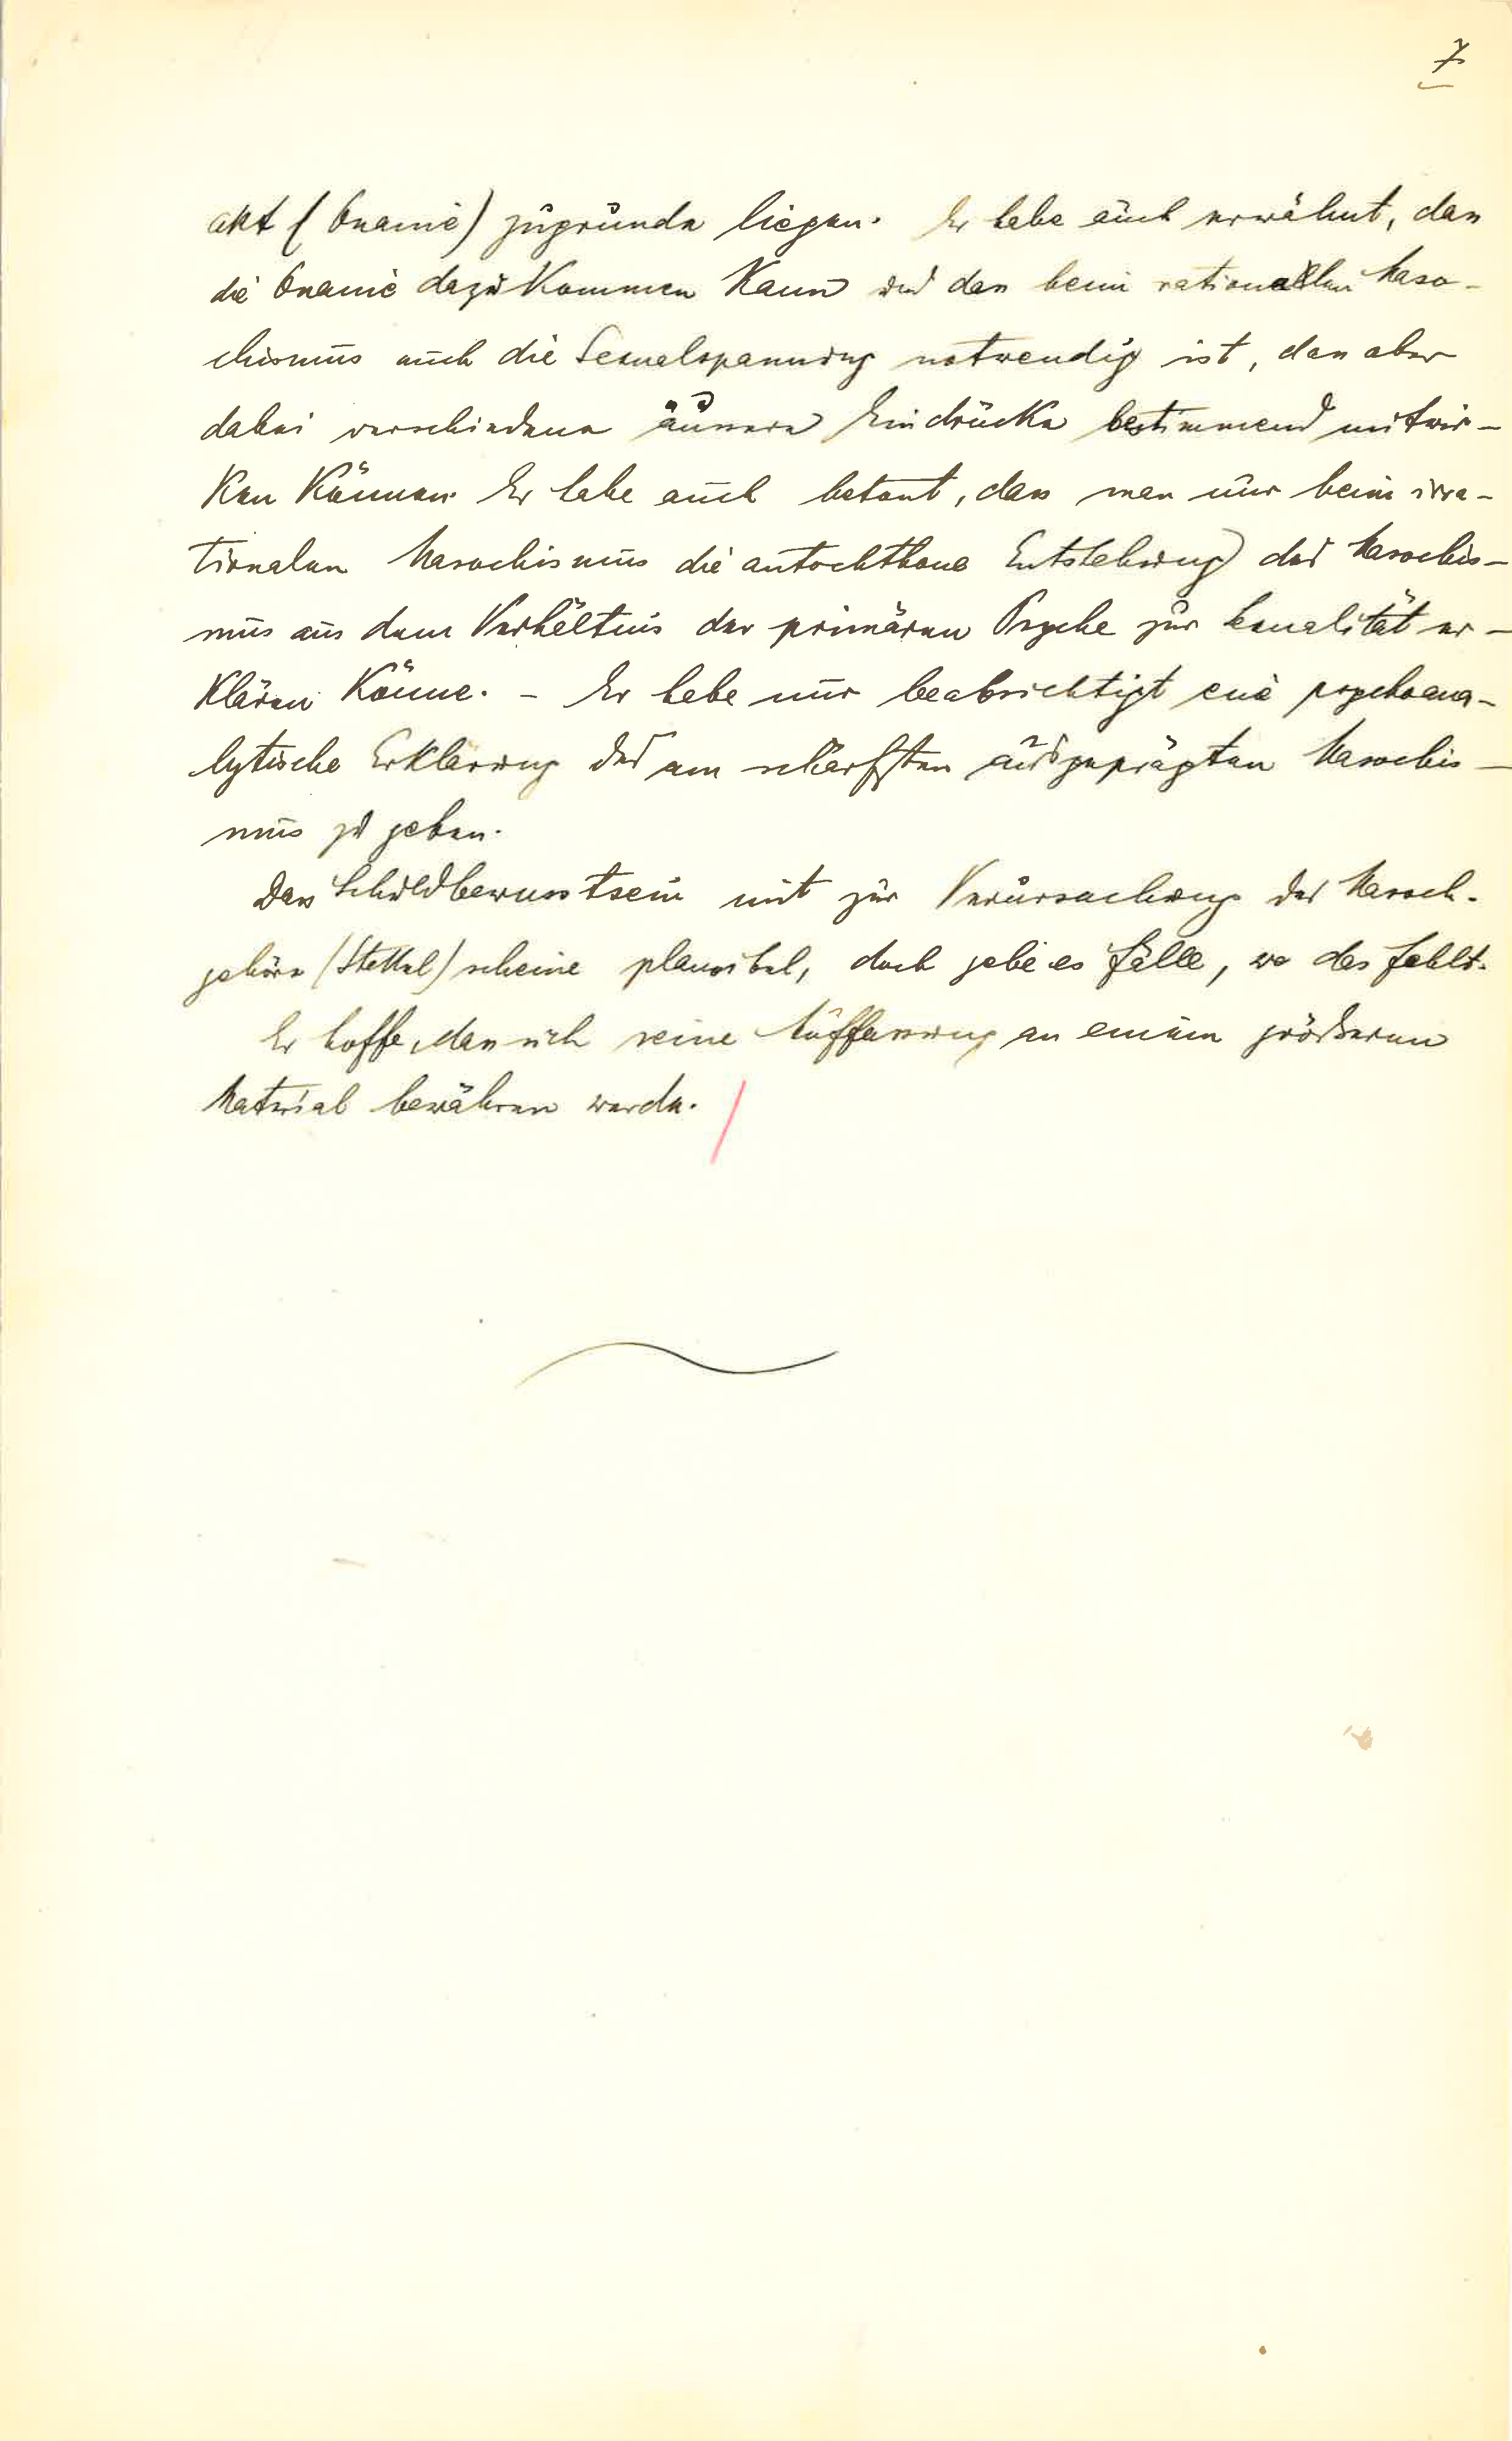 7
akt (Onanie) zugrunde liegen. Er habe auch erwähnt, dass
die Onanie dazu kommen kann und dass beim rationellen Maso-
chismus auch die Sexualspannung notwendig ist, dass aber
dabei verschiedene äussere Eindrücke bestimmend mitwir-
ken können. Er habe auch betont, dass man nur beim irra-
tionalen Masochismus die autochthone Entstehung des Masochis-
mus aus dem Verhältnis der primären Psyche zur Sexualität er-
klären könne. – Er habe nur beabsichtigt eine psychoana-
lytische Erklärung des am schärfsten ausgeprägten Masochis-
mus zu geben.
Dass Schuldbewusstsein mit zur Verursachung des Masoch.
gehöre (Stekel) scheine plausibel, doch gebe es Fälle, wo das fehlt.
Er hoffe, dass sich seine Auffassung an einem größeren
Material bewähren werde.